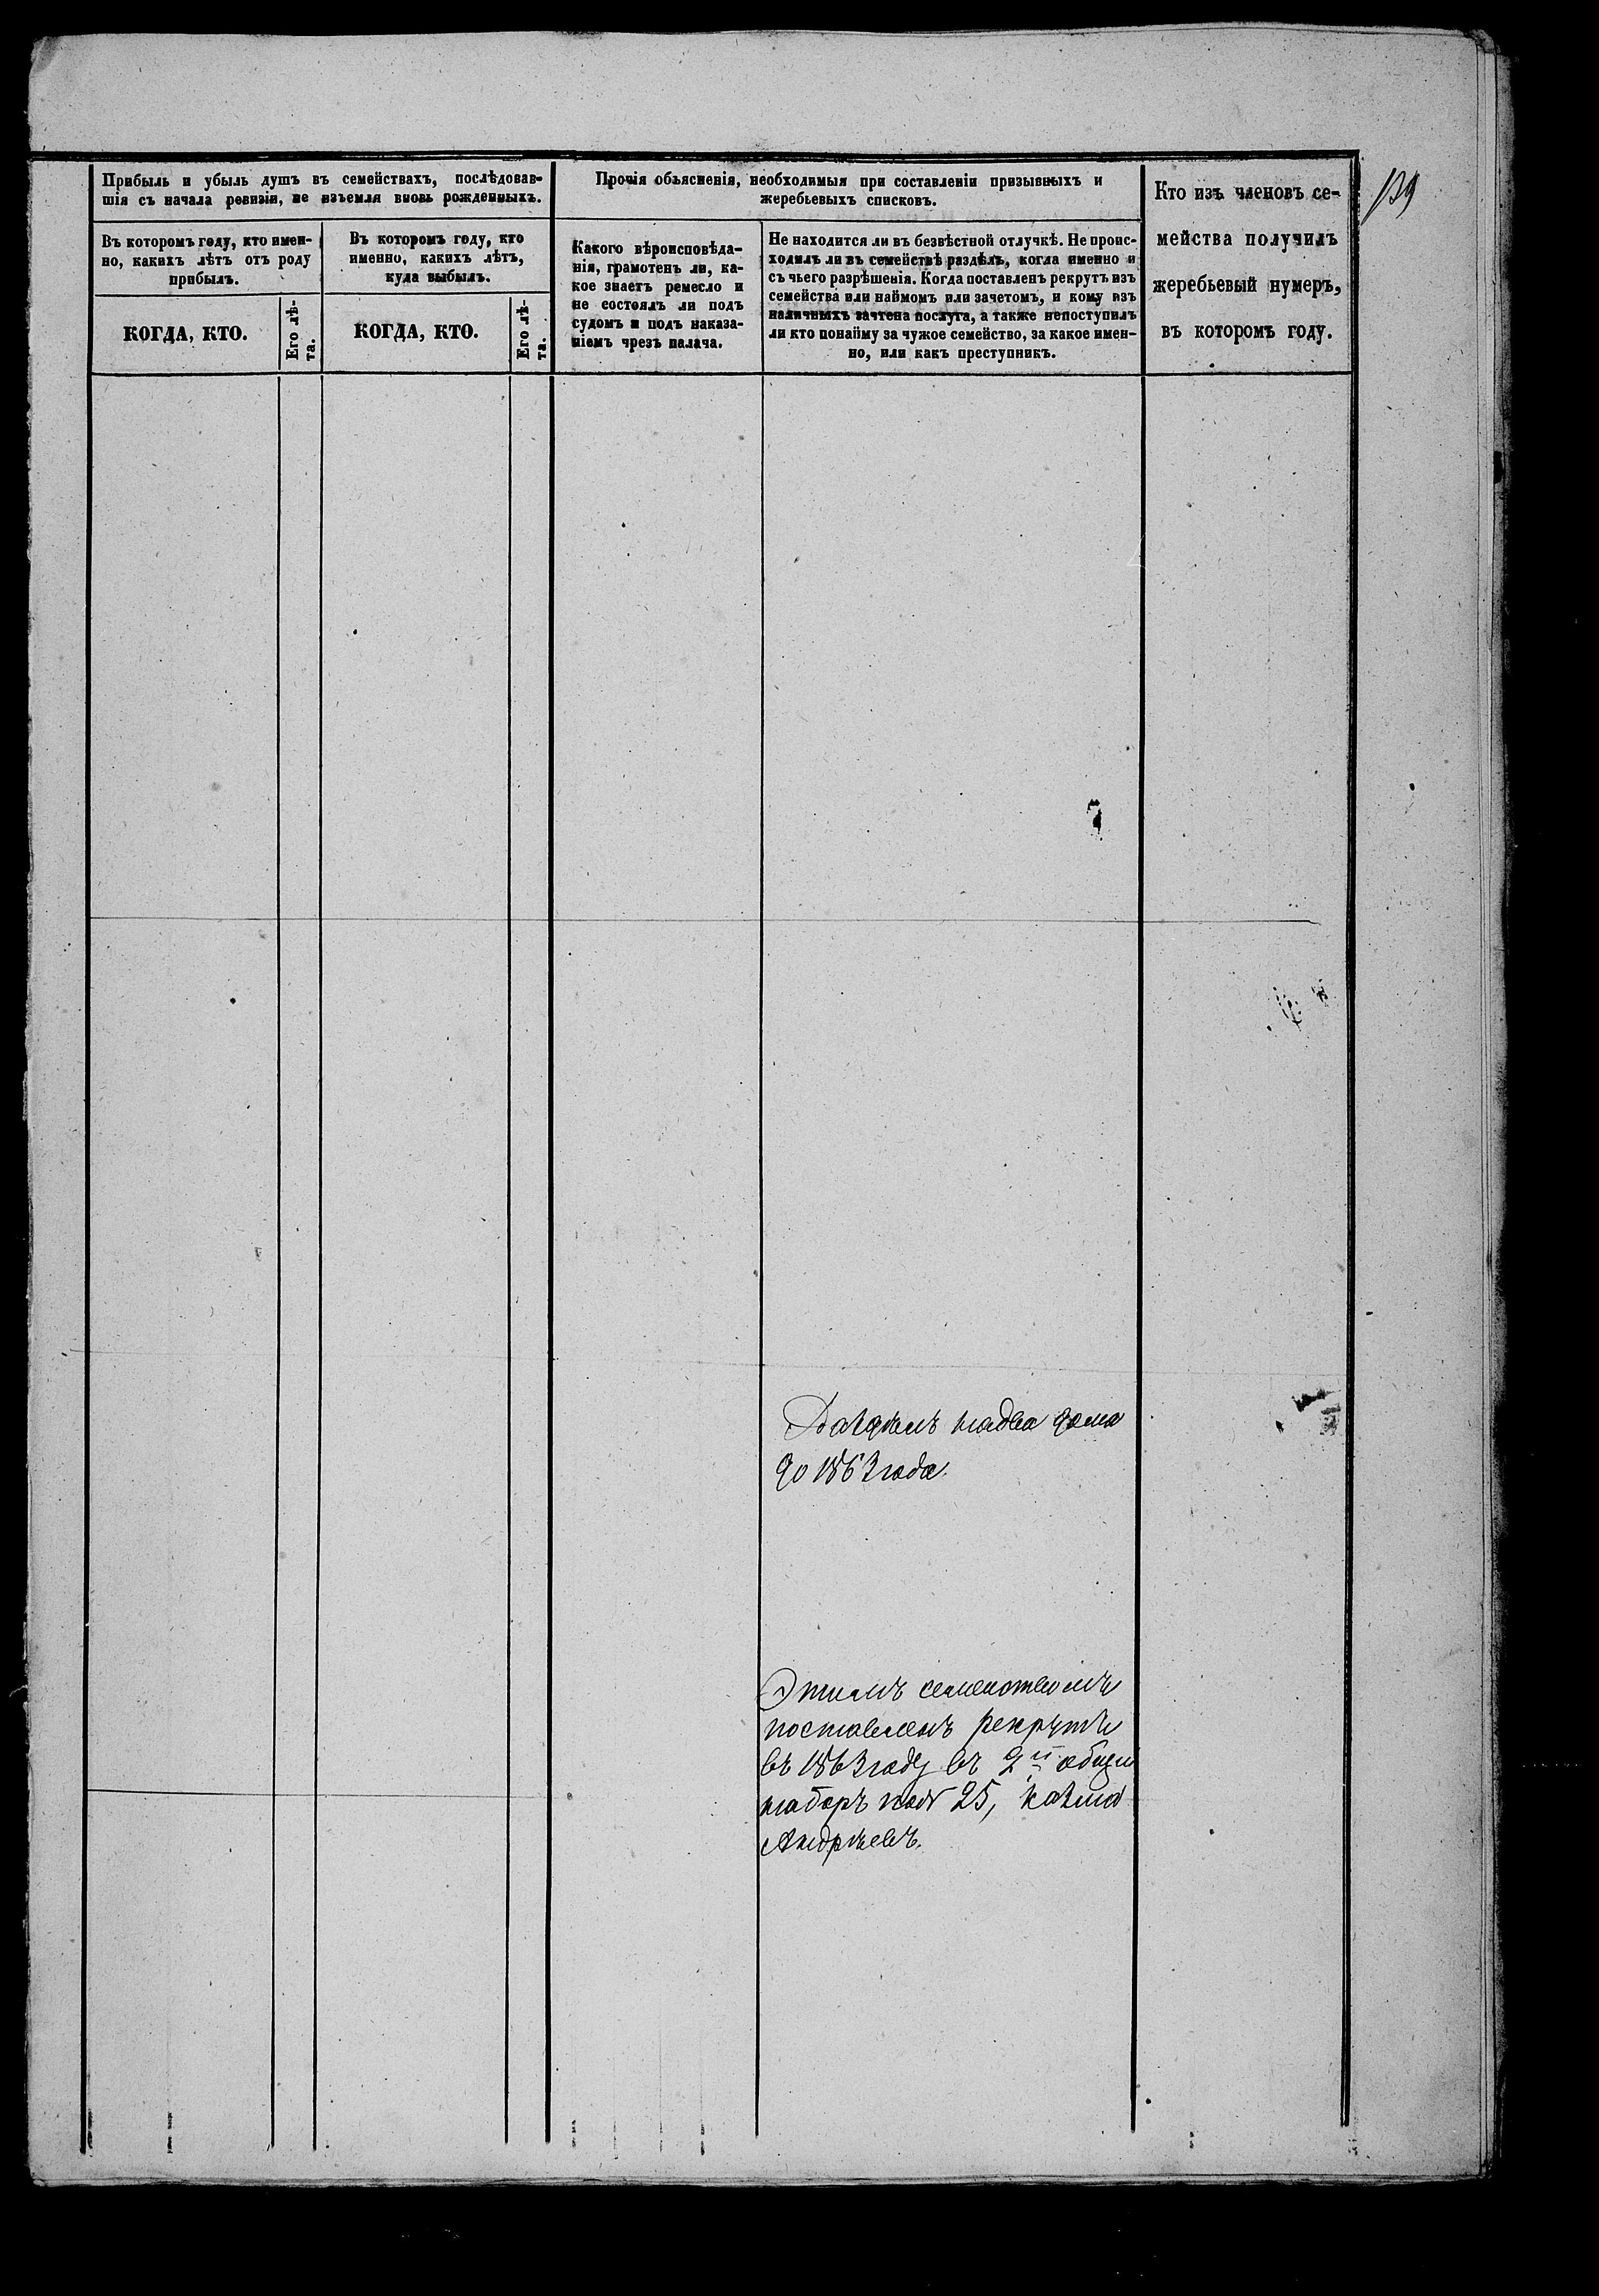 139
Прибыль и убыль душъ въ семействахъ, послѣдовав-
шія съ начала ревизіи, не изъемля вновь рожденныхъ.
Въ которомъ году, кто имен-
но, какихъ лѣтъ отъ роду
прибылъ.
КОГДА, КТО.
Его лѣ-
та.
Въ которомъ году, кто
именно, какихъ лѣтъ,
куда выбылъ.
КОГДА, КТО.
Его лѣ-
та.
Прочія объясненія, необходимыя при составленіи призывныхъ и
жеребьевыхъ списковъ.
Какого вѣроисповѣда-
нія, грамотенъ ли, ка-
кое знаетъ ремесло и
не состоялъ ли подъ
судомъ и подъ наказа-
ніемъ чрезъ палача.
Не находится ли въ безвѣстной отлучкѣ. Не проис-
ходилъ ли въ семействѣ раздѣлъ, когда именно и
съ чьего разрѣшенія. Когда поставленъ рекрутъ изъ
семейства или наймомъ или зачетомъ, и кому изъ
наличныхъ зачтена послуга, а также непоступилъ
ли кто понайму за чужое семейство, за какое имен-
но, или какъ преступникъ.
Кто изъ членовъ се-
мейства получилъ
жеребьевый нумеръ,
въ которомъ году.
Раздѣлъ надва дома
до 1863 года.
Этимъ семействомъ
поставленъ рекрутъ
въ 1863 году въ 2й общій
наборъ 25, Козма
Андрѣевъ.